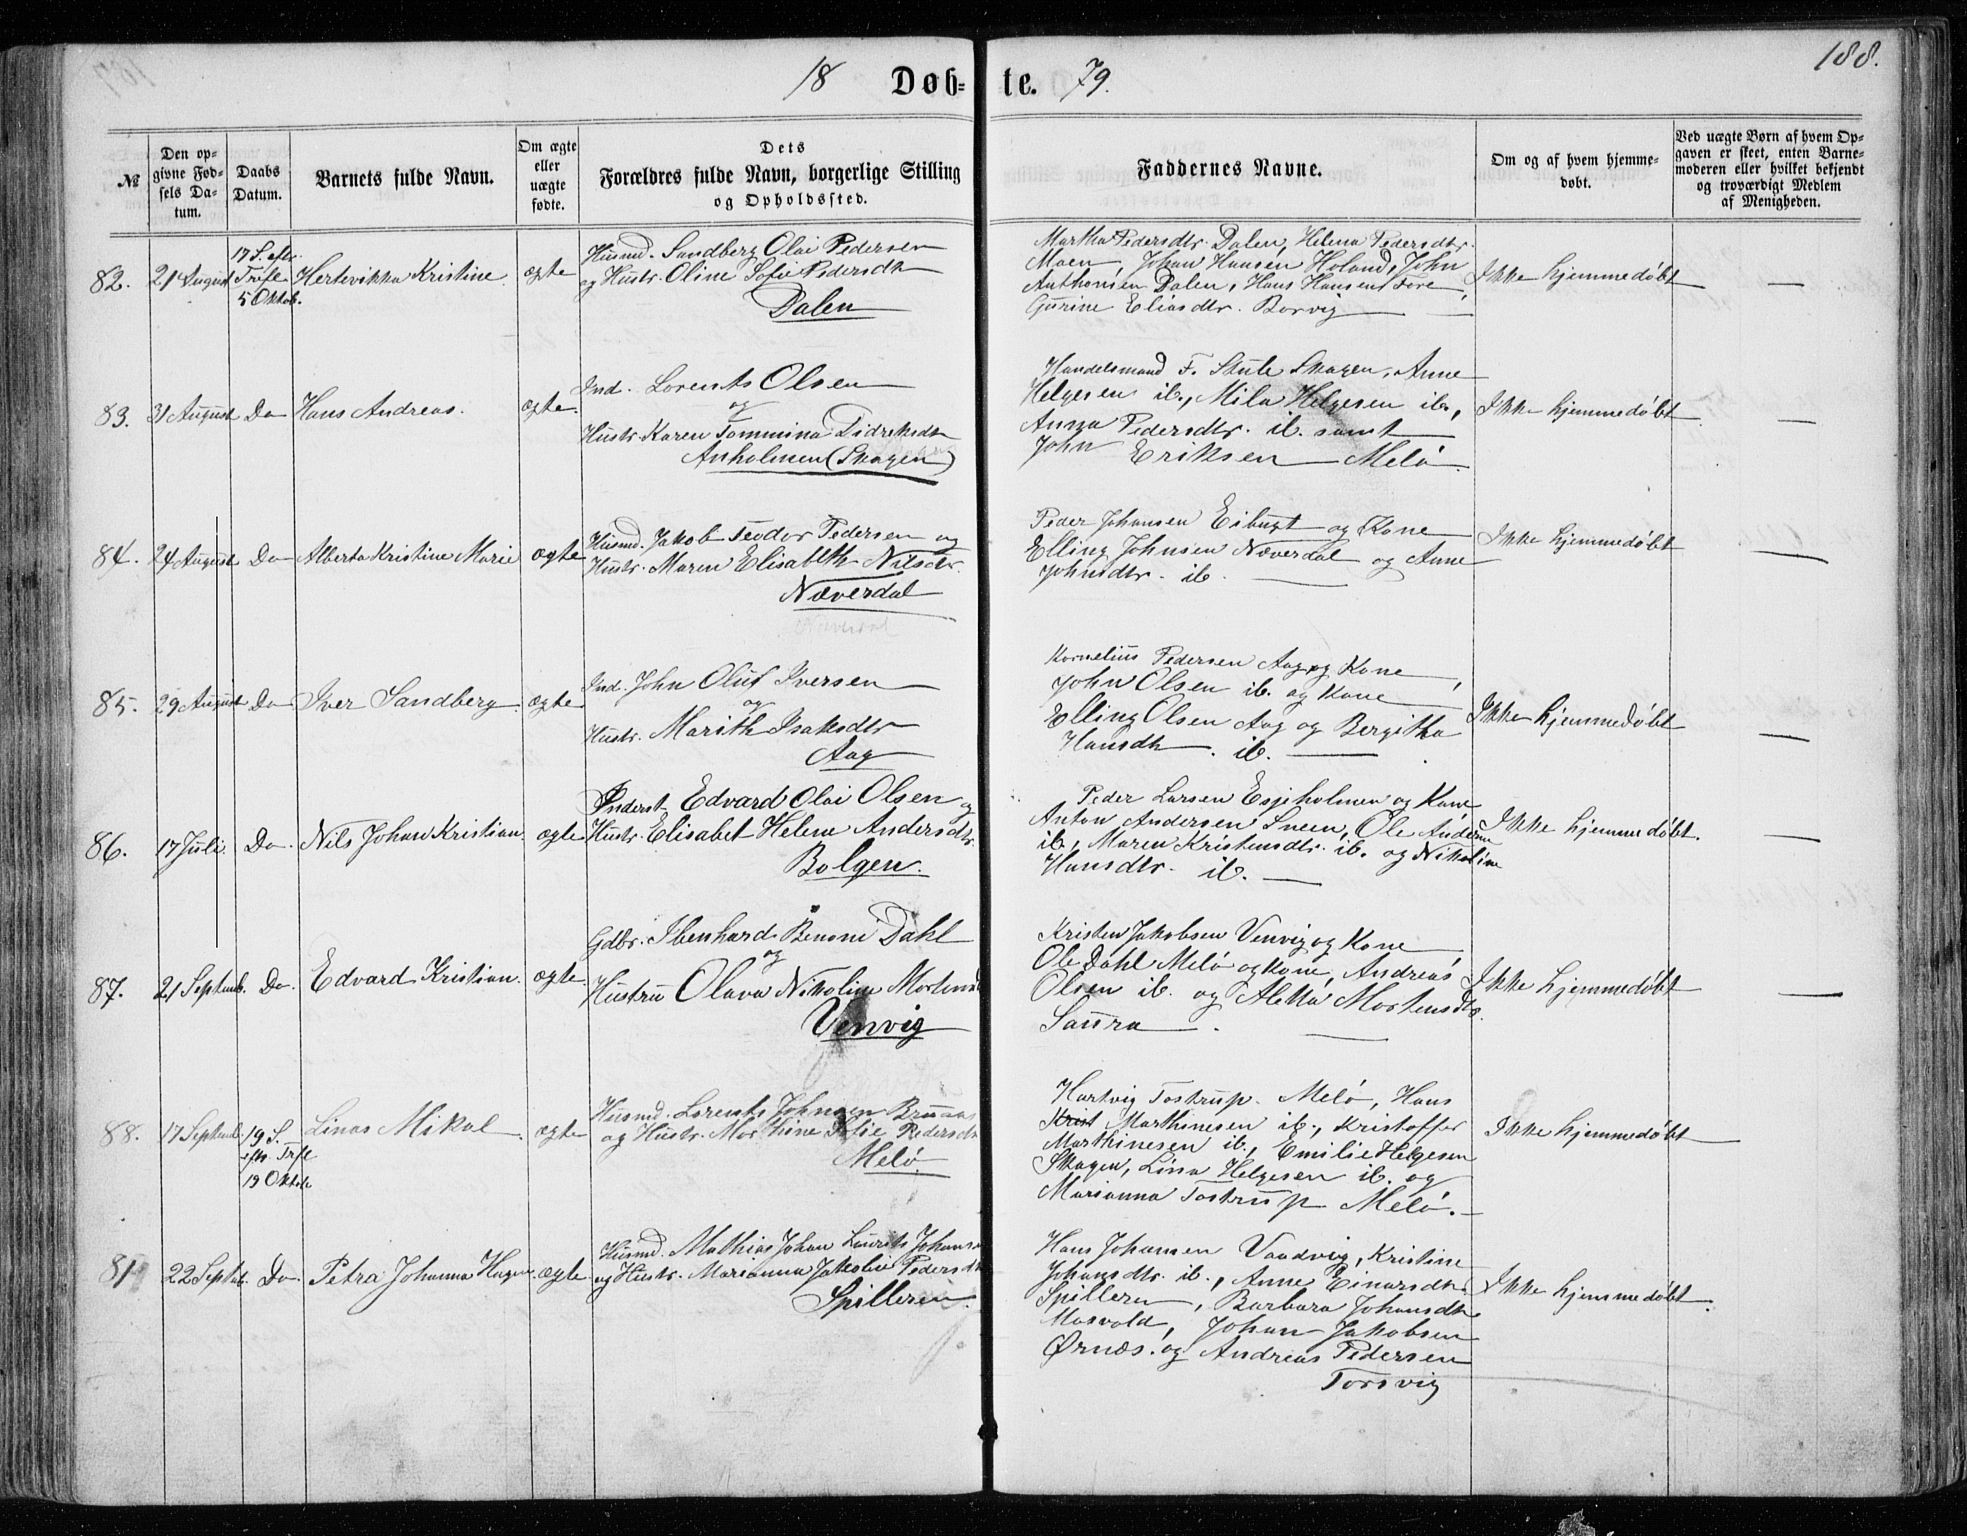 188.
18 Døb= te. 79.
№
Den op=
givne Fød=
sels Da=
tum.
Daabs
Datum.
Barnets fulde Navn.
Om ægte
eller
uægte
fødte.
Dets
Forældres fulde Navn, borgerlige Stilling
og Opholdssted.
Faddernes Navne.
Om og af hvem hjemme=
døbt.
Ved uægte Børn af hvem Op=
gaven er skeet, enten Barne=
moderen eller hvilket bekjendt
og troværdigt Medlem
af Menigheden.
82. 21 August
17 S. efter
Trfl.
5 Oktob.
Hertevikka Kristine ægte
Husmd. Sandberg Olai Pedersen
og Hustr. Oline Sofie Pedersdtr
Dalen
Martha Pedersdtr. Dalen, Helena Pedersdtr.
Moen, Johan Hansen Holand, John
Anthonsen Dalen, Hans Hansen Fore,
Gurine Eliasdtr. Borvig
Ikke hjemmedøbt —
83. 31 August Do Hans Andreas. ægte.
Ind. Lorents Olsen
og
Hustr. Karen Tommina Didreksdtr
Anholmen (Skagen)
Handelsmand F. Skule Skagen, Anne
Helgesen ib., Mila Helgesen ib.,
Anna Pedersdtr. ib. samt
John Eriksen Melø.
Ikke hjemmedøbt —
84. 24 August Do Alberta Kristine Marie ægte
Husmd. Jakob Teodor Pedersen og
Hustr. Maren Elisabeth Nilsdtr.
Næverdal
Peder Johansen Eibugt og Kone
Elling Johnsen Næverdal og Anne
Johnsdtr. ib.
Ikke hjemmedøbt —
85. 29 August Do Iver Sandberg. ægte
Ind. John Oluf Iversen
og
Hustr. Marith Isaksdtr
Aag
Kornelius Pedersen Aag og Kone,
John Olsen ib. og Kone
Elling Olsen Aag og Bergitha
Hansdtr. ib.
Ikke hjemmedøbt —
86. 17 Juli. Do. Nils Johan Kristian. ægte
Inderst Edvard Olai Olsen og
Hustr. Elisabet Helene Andersdtr.
Bolgen.
Peder Larsen Esjeholmen og Kone
Anton Andersen Sneen, Ole Andersen
ib., Maren Kristensdtr. ib. og Nikoline
Hansdtr. ib.
Ikke hjemmedøbt. —
87. 21 Septemb. Do. Edvard Kristian. ægte.
Gdbr. Ibenhard Benoni Dahl
og
Hustru Olava Nikoline Mortensd
Venvig
Kristen Jakobsen Venvig og Kone
Ole Dahl Melø og Kone, Andreas
Olsen ib. og Aletta Mortensdtr.
Saura
Ikke hjemmedøbt —
88. 17 Septemb.
19 S.
eftr Trfl
19 Oktob
Linas Mikal. ægte
Husmd. Lorents Johnsen Bruaas
og Hustr. Marthine Sofie Pedersdtr
Melø.
Hartvig Tostrup. Melø, Hans
Krist Marthinesen ib., Kristoffer
Marthinesen ib., Emilie Helgesen
Skagen, Lina Helgesen ib. og
Marianna Tostrup Melø.
Ikke hjemmedøbt
81 22 Septb. Do. Petra Johanna Hagen. ægte
Husmd. Mathias Johan Laurits Johanse
og Hustr. Marianna Jakobin Pedersdtr
Spilleren.
Hans Johansen Vaadvig, Kristine
Johansdtr. ib., Anne Einarsdtr.
Spilleren, Barbara Johansdtr
Mosvold, Johan Jakobsen
Ørnæs. og Andreas Pedersen
Torsvig
Ikke hjemmedøbt.